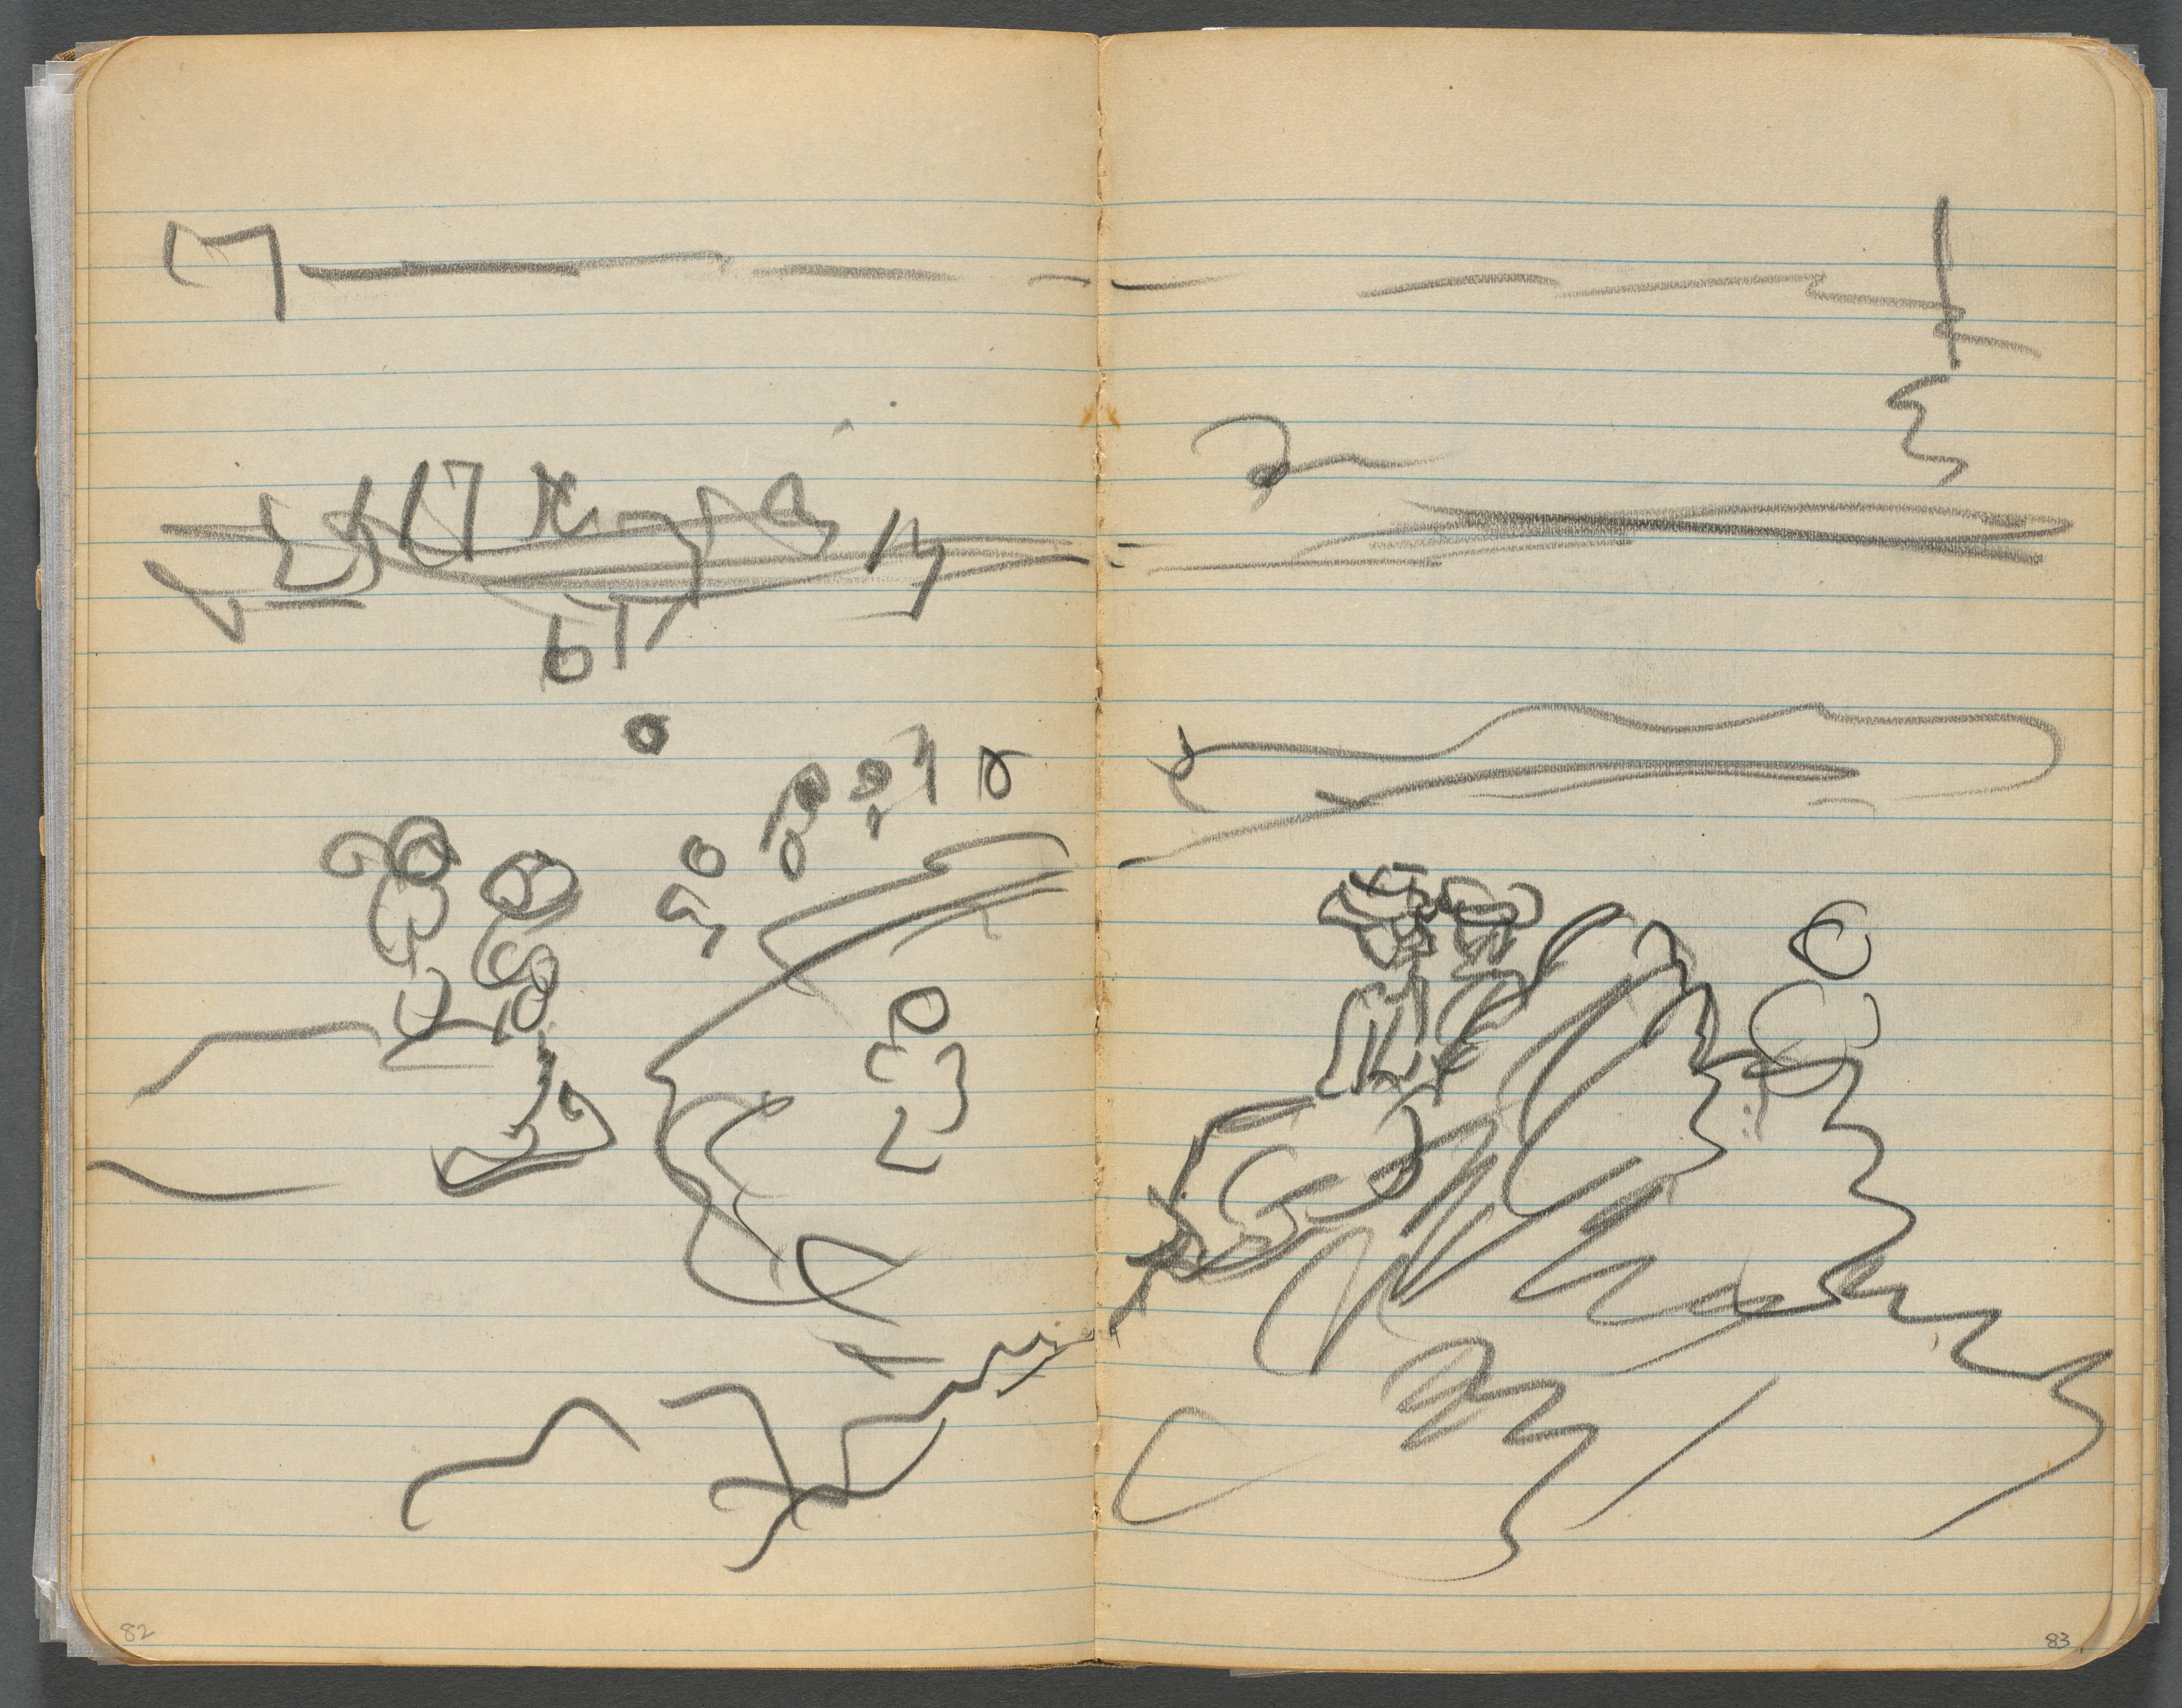 82
83